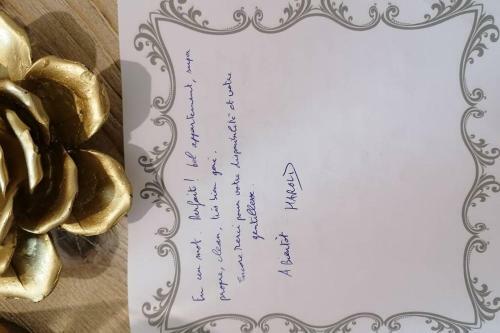 En un mot. Parfait! bel appartement, super
propre, clean, très bien géré.
Encore merci pour votre disponibilité et votre
gentillesse.
A bientôt HAROLD